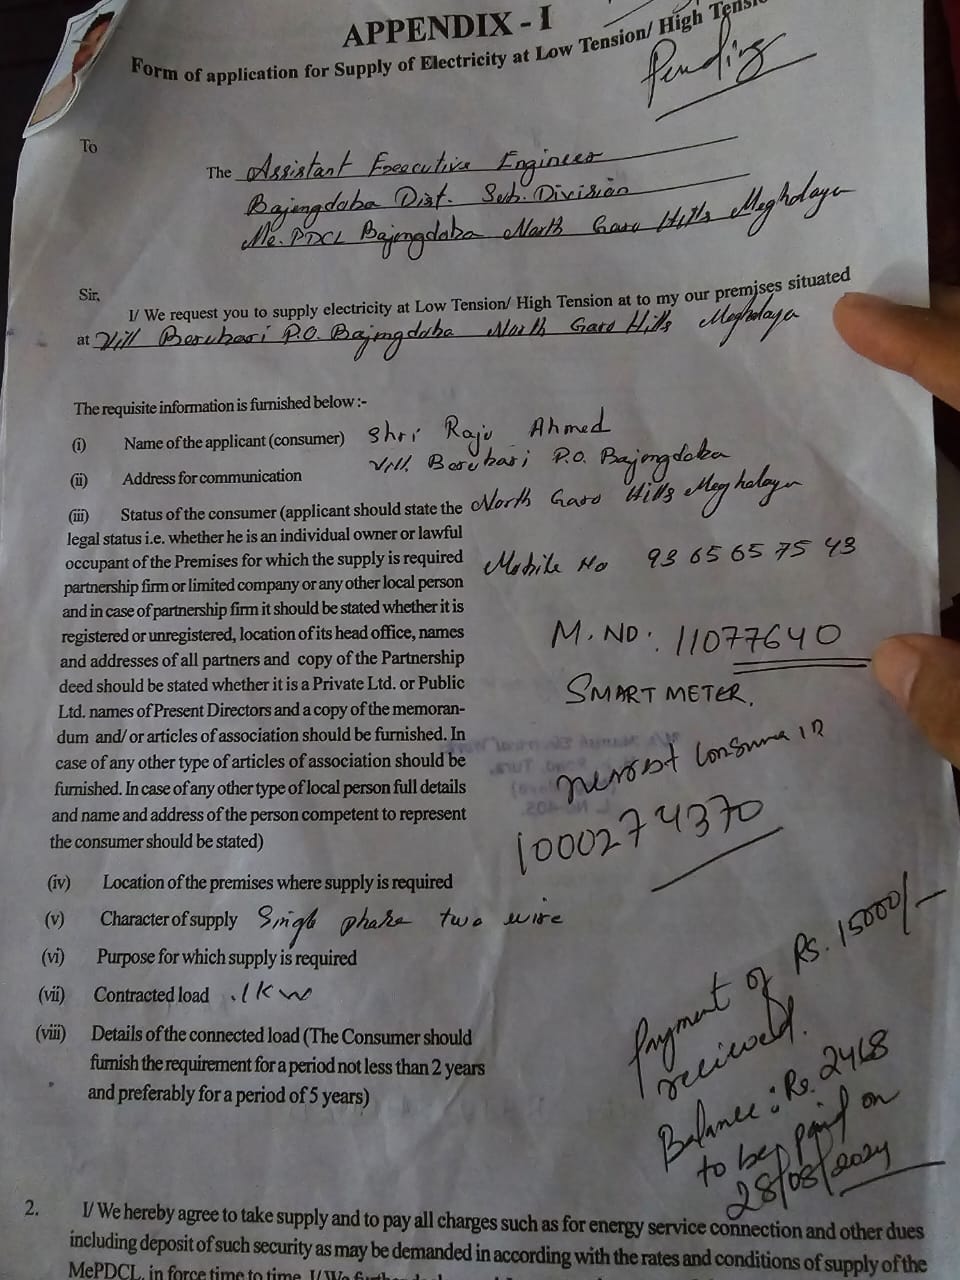 APPENDIX - I
Form of application for Supply of Electricity at Low Tension/ High Tensio
Pending
To
The Assistant Executive Engineer
Bajengdoba Dist. Sub. Division
Me. PDCL Bajengdoba North Garo Hills Meghalaya
Sir,
I/ We request you to supply electricity at Low Tension/ High Tension at to my our premises situated
at Vill Berubari P.O. Bajengdoba North Garo Hills Meghalaya
The requisite information is furnished below :-
(i) Name of the applicant (consumer) Shri Raju Ahmed
(ii) Address for communication Vill. Berubari P.O. Bajengdoba
North Garo Hills Meghalaya
(iii) Status of the consumer (applicant should state the
legal status i.e. whether he is an individual owner or lawful
occupant of the Premises for which the supply is required
partnership firm or limited company or any other local person
and in case of partnership firm it should be stated whether it is
registered or unregistered, location of its head office, names
and addresses of all partners and copy of the Partnership
deed should be stated whether it is a Private Ltd. or Public
Ltd. names of Present Directors and a copy of the memoran-
dum and/ or articles of association should be furnished. In
case of any other type of articles of association should be
furnished. In case of any other type of local person full details
and name and address of the person competent to represent
the consumer should be stated)
Mobile No 93 65 65 75 43
M. NO: 11077640
SMART METER.
nearest Consumer ID
1000274370
(iv) Location of the premises where supply is required
(v) Character of supply Singl phase two wire
(vi) Purpose for which supply is required
(vii) Contracted load .1KW
(viii) Details of the connected load (The Consumer should
furnish the requirement for a period not less than 2 years
and preferably for a period of 5 years)
Payment of Rs. 15000/-
received.
Balance : Rs. 2468
to be paid on
28/08/2024
2. I/ We hereby agree to take supply and to pay all charges such as for energy service connection and other dues
including deposit of such security as may be demanded in according with the rates and conditions of supply of the
MePDCL, in force time to time. I/We